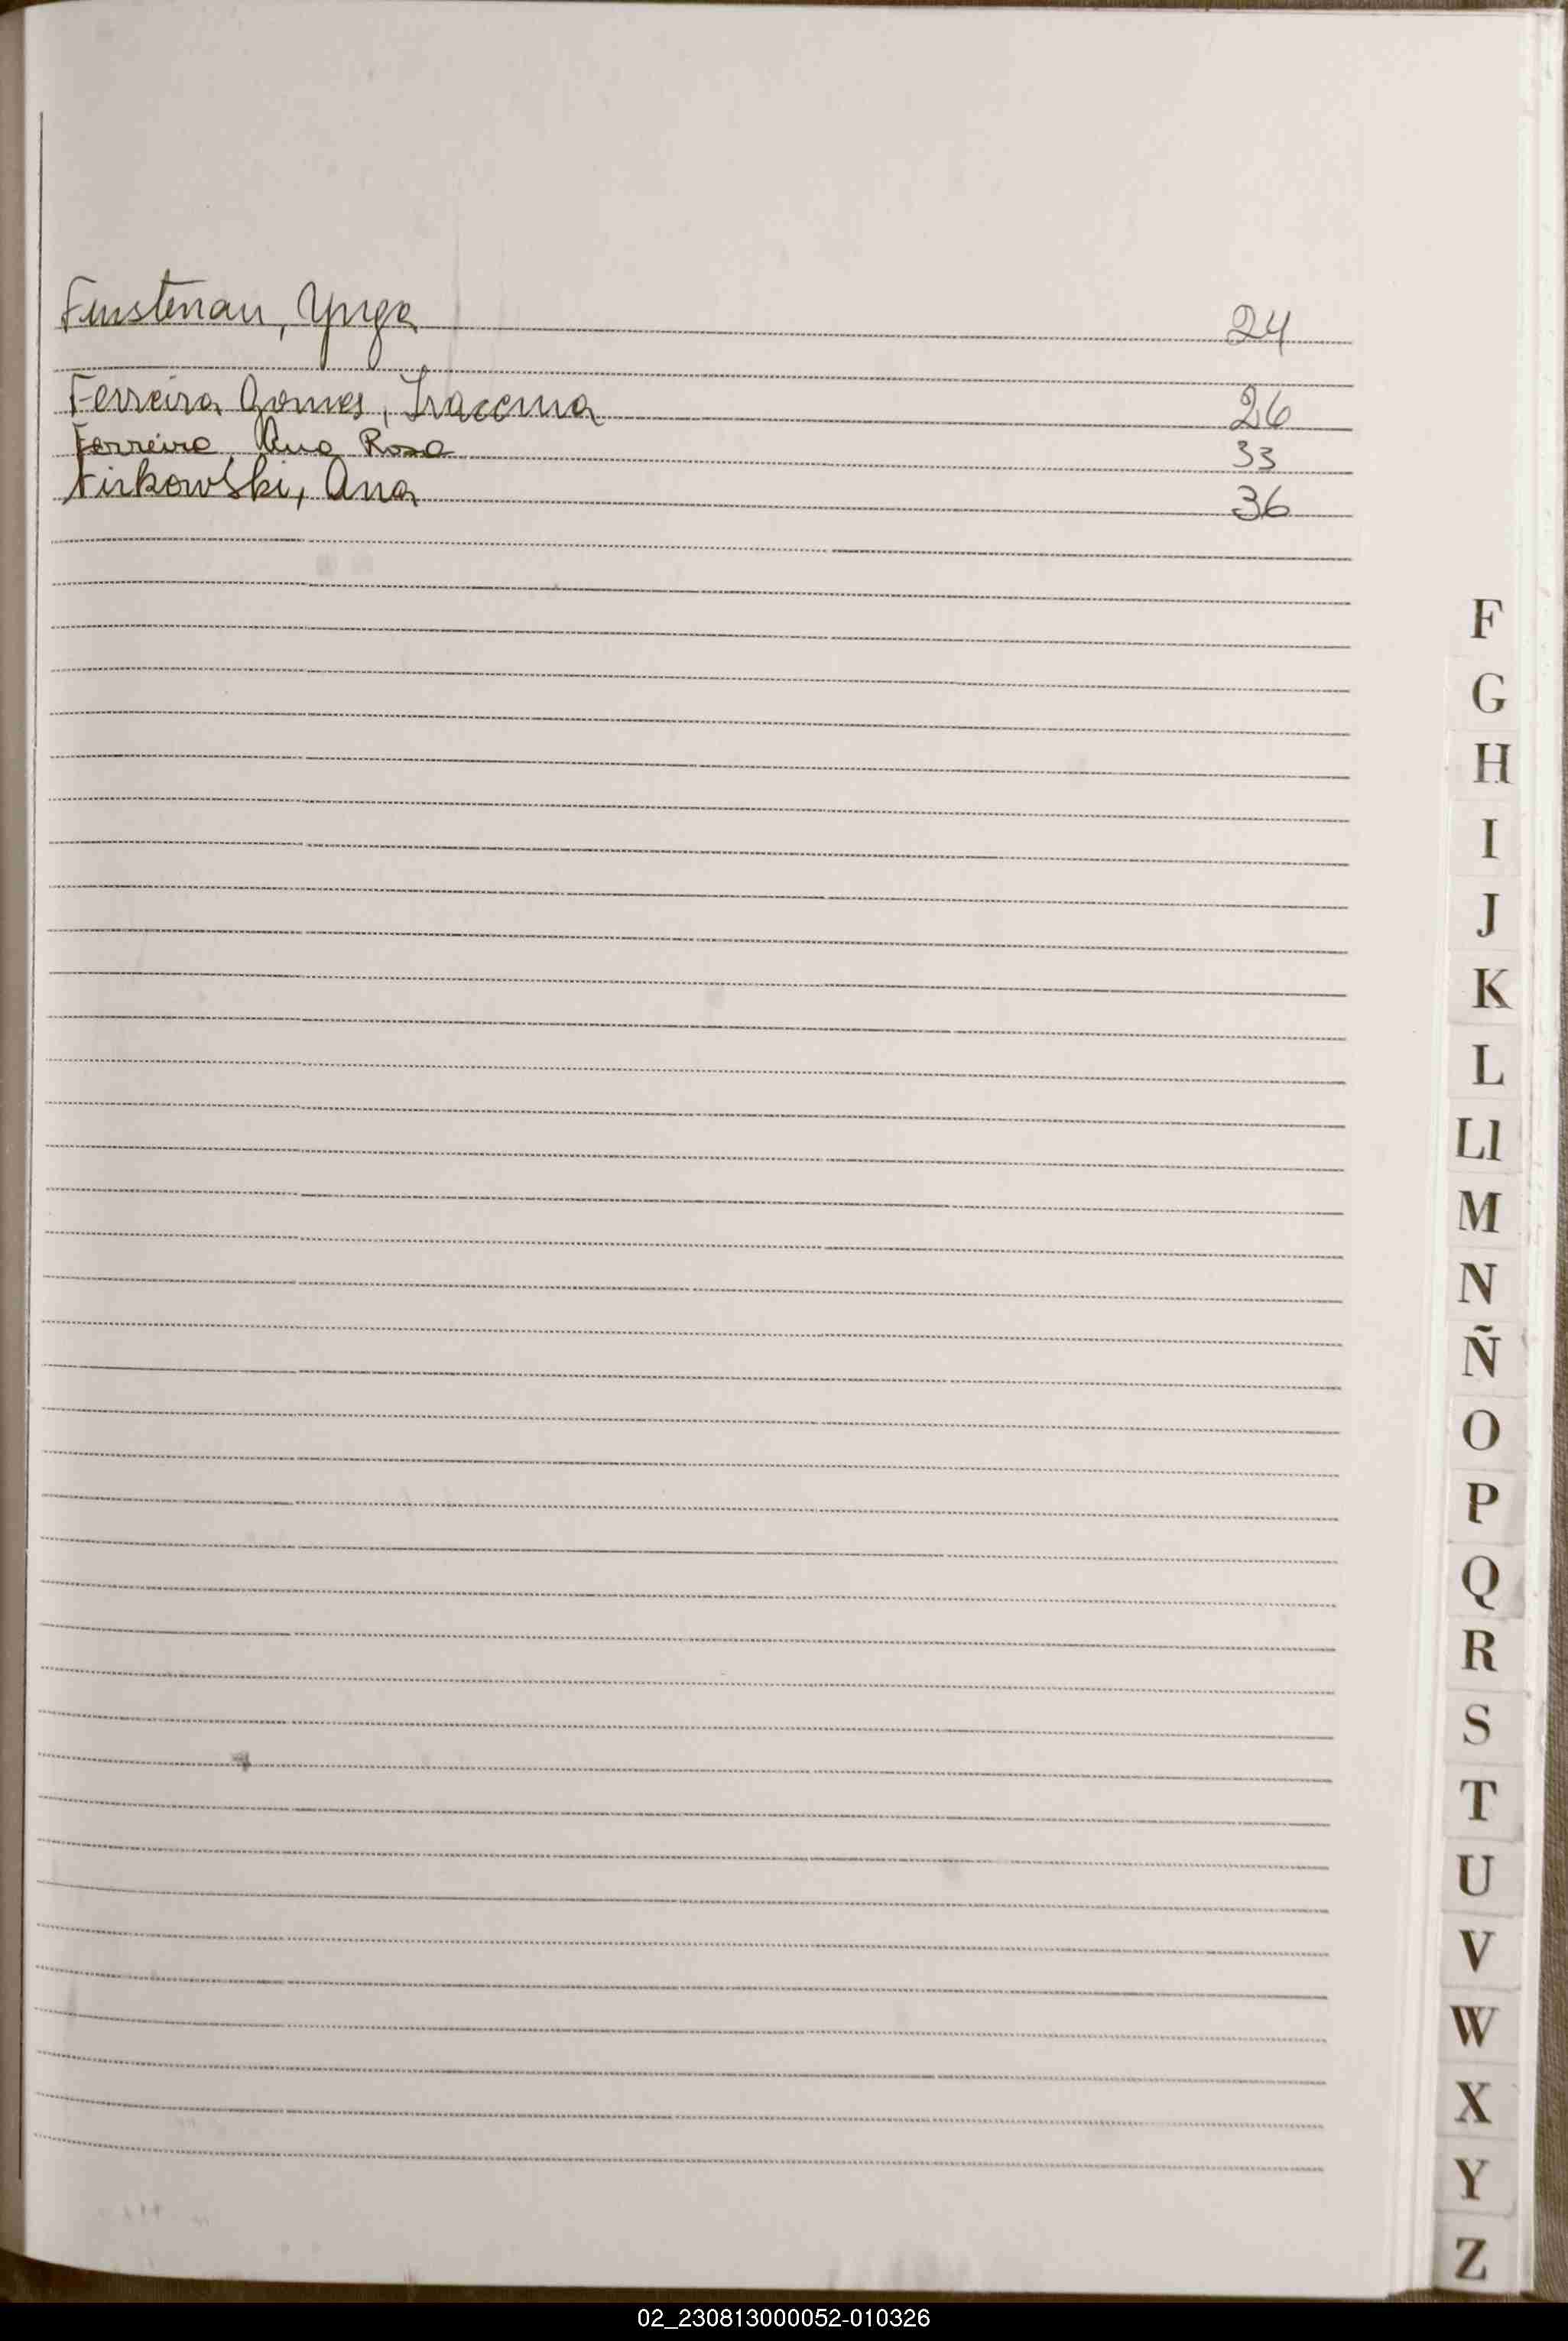 Furstenau, Ynge 24
Ferreira Gomes, Iracema 26
Ferreira, Ana Rosa 33
Firkowski, Ana 36
F
G
H
I
J
K
L
Ll
M
N
Ñ
O
P
Q
R
S
T
U
V
W
X
Y
Z
02_230813000052-010326